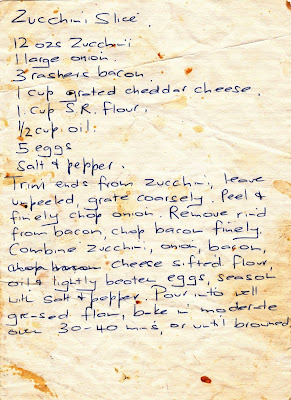 Zucchini Slice.
12 ozs Zucchini
1 large onion.
3 rashers bacon.
1 cup grated cheddar cheese.
1 cup S.R. flour.
1/2 cup oil.
5 eggs
Salt & pepper.
Trim ends from Zucchini, leave
unpeeled, grate coarsely. Peel &
finely chop onion. Remove rind
from bacon, chop bacon finely.
Combine Zucchini, onion, bacon,
chop bacon cheese sifted flour,
oil & lightly beaten eggs, season
with salt & pepper. Pour into well
greased flan, bake in moderate
oven 30-40 mins, or until browned.